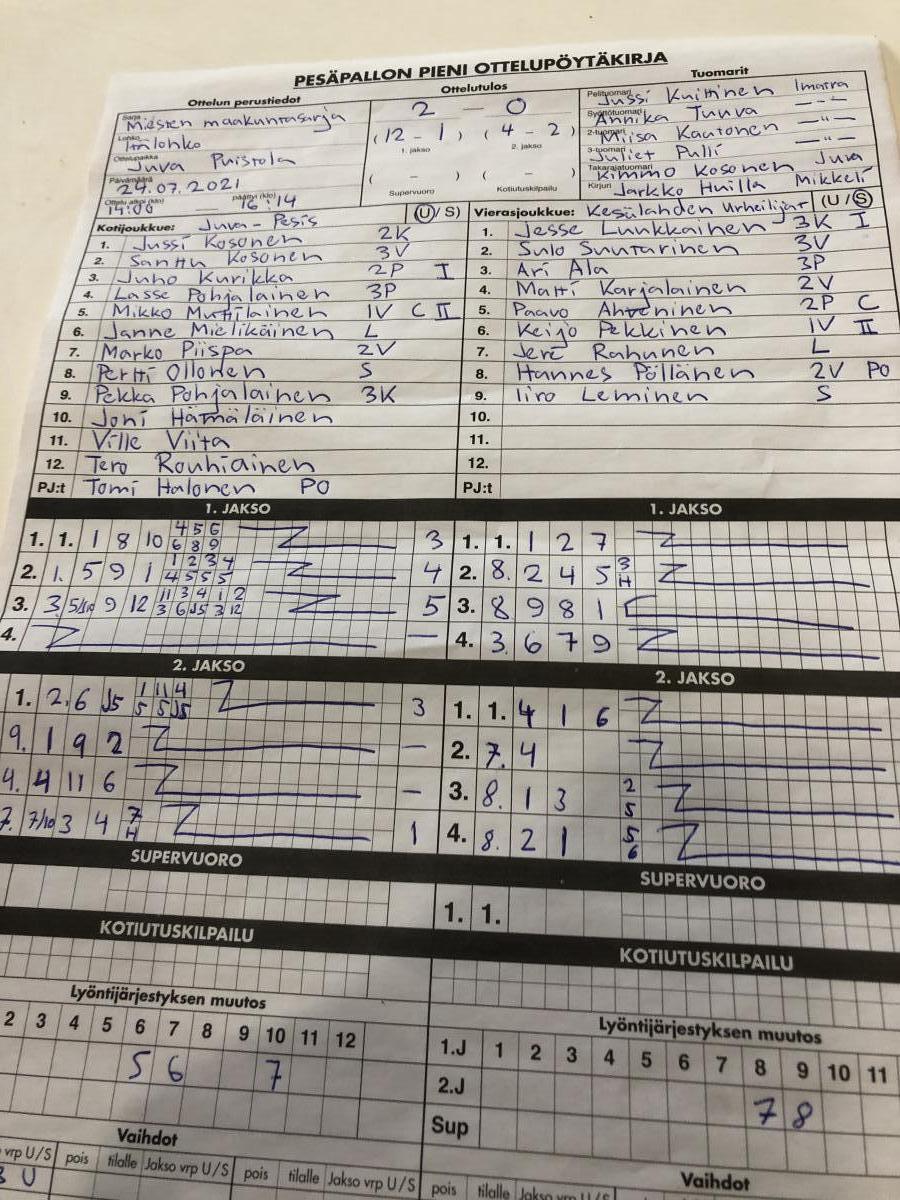 PESÄPALLON PIENI OTTELUPÖYTÄKIRJA
Ottelun perustiedot
Sarja Miesten maakuntasarja
Lohko Itälohko
Ottelupaikka Juva Puistola
Päivämäärä 24.07.2021
Ottelu alkoi (klo) 14:00 päättyi (klo) 16:14
Ottelutulos
2 – 0
(12 - 1) (4 - 2)
1. jakso 2. jakso
( – ) ( – )
Supervuoro Kotiutuskilpailu
Tuomarit
Pelituomari Jussi Kuittinen Imatra
Syöttötuomari Annika Tuuva -"-
2-tuomari Miisa Kautonen -"-
3-tuomari Juliet Pulli -"-
Takarajatuomari Kimmo Kosonen Juva
Kirjuri Jarkko Huilla Mikkeli
Kotijoukkue: Juva-Pesis (U/S)
1. Jussi Kosonen 2K
2. Santtu Kosonen 3V
3. Juho Kurikka 2P I
4. Lasse Pohjalainen 3P
5. Mikko Muttilainen 1V C II
6. Janne Mielikäinen L
7. Marko Piispa 2V
8. Pertti Ollonen S
9. Pekka Pohjalainen 3K
10. Joni Hämäläinen
11. Ville Viita
12. Tero Rouhiainen
PJ:t Tomi Halonen PO
Vierasjoukkue: Kesälahden Urheilijat (U/S)
1. Jesse Luukkainen 3K I
2. Sulo Suutarinen 3V
3. Ari Ala 3P
4. Matti Karjalainen 2V
5. Paavo Ahveninen 2P C
6. Keijo Pekkinen 1V II
7. Jere Rahunen L
8. Hannes Pöllänen 2V PO
9. Iiro Leminen S
10.
11.
12.
PJ:t
1. JAKSO
1. 1. 1 8 10 4 5 6 3
6 8 9
2. 1. 5 9 1 1 2 3 4 4
4 5 5 5
3. 3 5/10 9 12 11 3 4 1 2 5
3 6 J5 3 12
4. –
1. JAKSO
1. 1. 1 2 7
2. 8. 2 4 5 3
H
3. 8 9 8 1
4. 3. 6 7 9
2. JAKSO
1. 2. 6 J5 1 11 4 3
5 5 J5
9. 1 9 2 –
4. 4 11 6 –
7. 7/10 3 4 7 1
H
2. JAKSO
1. 1. 4 1 6
2. 7. 4
3. 8. 1 3 2
5
4. 8. 2 1 5
6
SUPERVUORO
SUPERVUORO
1. 1.
KOTIUTUSKILPAILU
KOTIUTUSKILPAILU
Lyöntijärjestyksen muutos
2 3 4 5 6 7 8 9 10 11 12
5 6 7
Lyöntijärjestyksen muutos
1.J 1 2 3 4 5 6 7 8 9 10 11
2.J 7 8
Sup
Vaihdot
vrp U/S pois tilalle Jakso vrp U/S pois tilalle Jakso vrp U/S
3 U
Vaihdot
pois tilalle Jakso vrp U/S